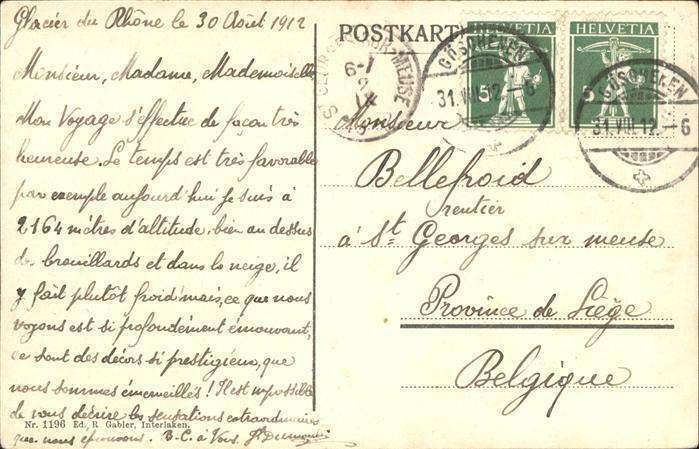 Glacier du Rhône le 30 Août 1912
Monsieur, Madame, Mademoiselle
Mon Voyage s'effectue de façon très
heureuse. Le temps est très favorable
par exemple aujourd'hui je suis à
2164 mètres d'altitude, bien au dessus
des brouillards et dans la neige, il
y fait plutôt froid mais, ce que nous
voyons est si profondément émouvant,
ce sont des décors si prestigieux, que
nous sommes émerveillés! Il est impossible
de vous décrire les sensations extraordinaires
que nous éprouvons. B.-C. à Vous.
Nr. 1196 Ed. R. Gabler, Interlaken.
POSTKARTE
HELVETIA
HELVETIA
5
5
GÖSCHENEN
31.VIII.12.-6
GÖSCHENEN
31.VIII.12.-6
MEUSE
6-7
IX
Monsieur
Bellefroid
rentier
à St Georges sur meuse
Province de Liège
Belgique